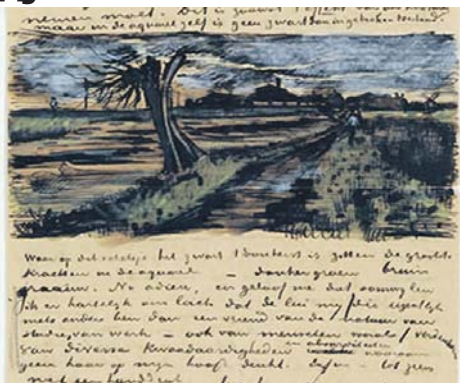 nemen moet. Dit is
maar in de aquarel zelf is geen zwart dan in gebroken toestand.
Waar op dit schetsje het zwart 't donkerst is zitten de grootste
krachten in de aquarel – donkergroen bruin
graauw. Nu adieu, en geloof me dat soms ik
er hartelijk om lach dat de lui mij die eigenlijk
niets anders ben dan een vriend van de natuur van
studie, van werk – ook van menschen vooral verdenken
van diverse kwaadaardigheden en absurditeiten waarvan
geen haar op mijn hoofd denkt. Enfin – tot ziens
met een handdruk